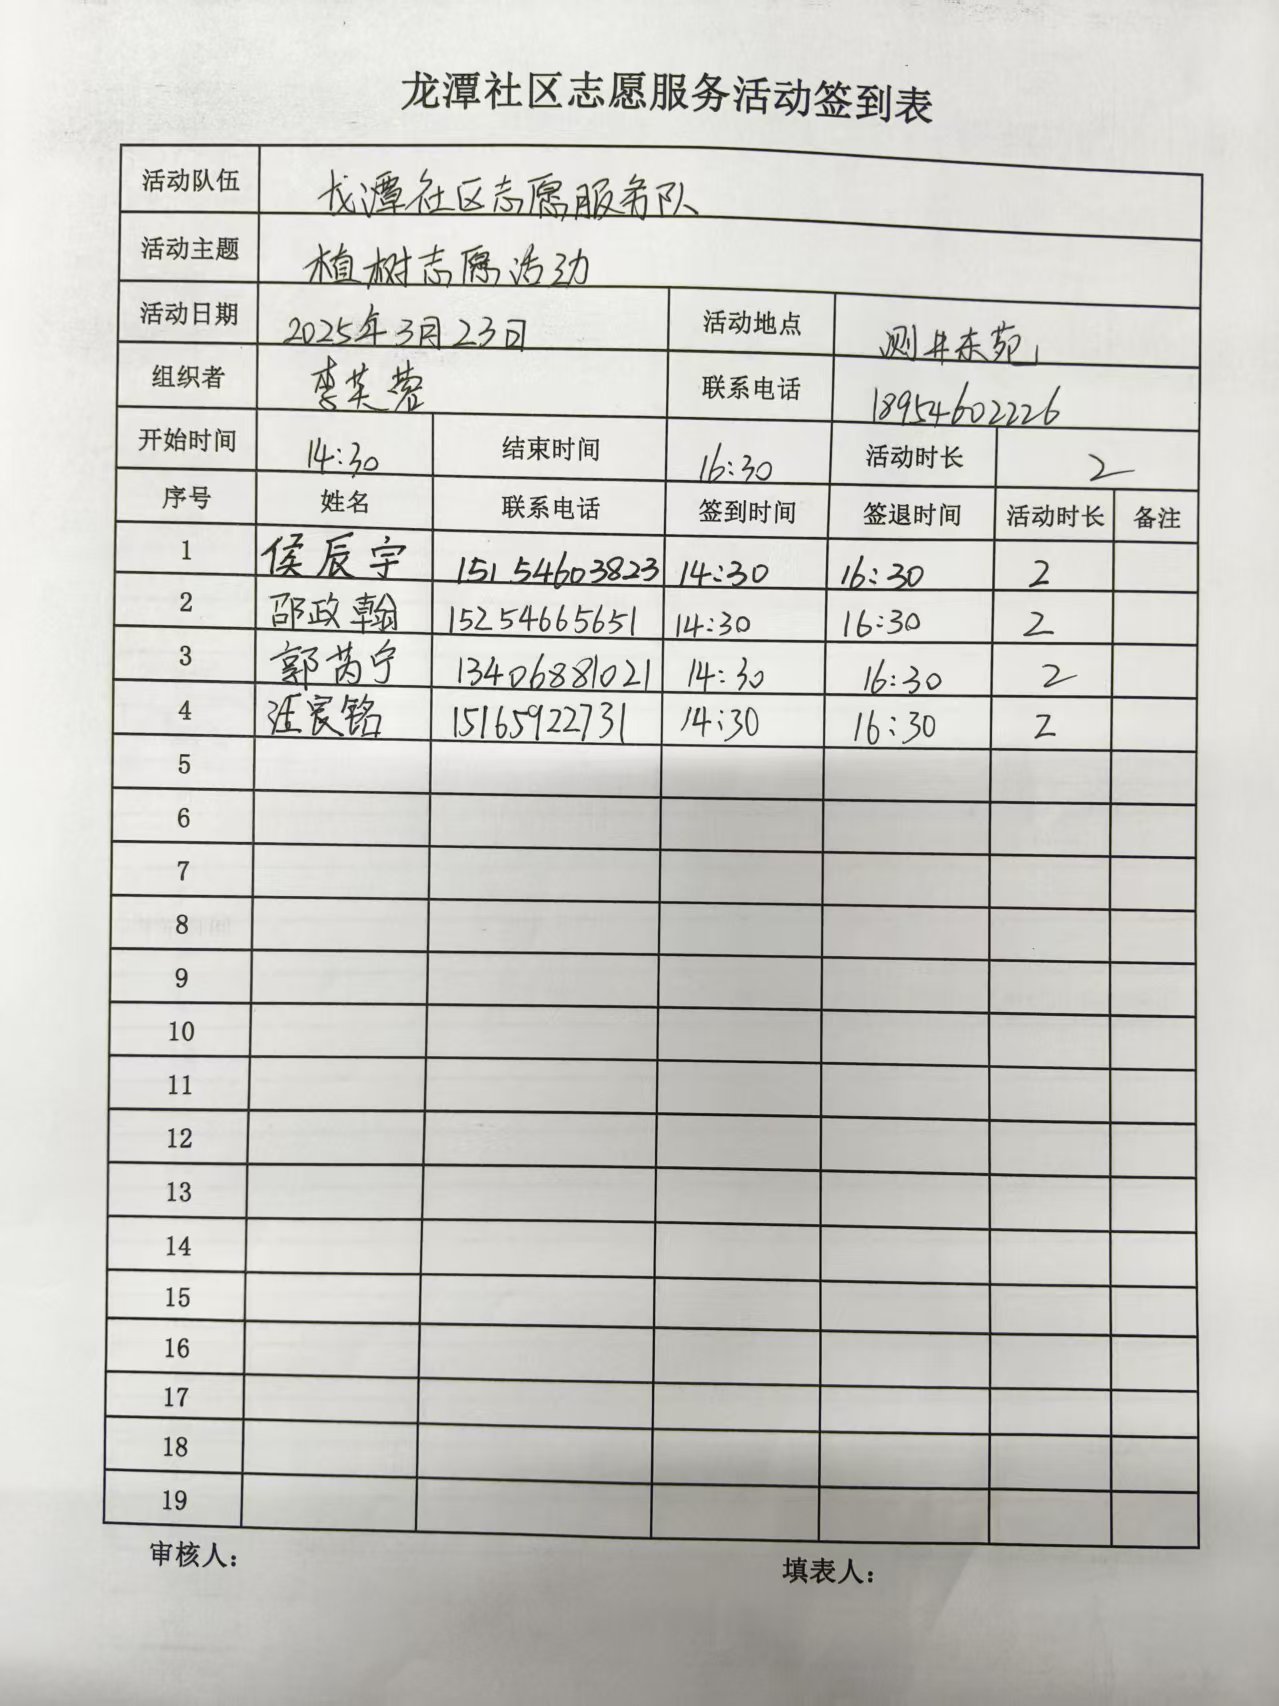 龙潭社区志愿服务活动签到表
活动队伍 龙潭社区志愿服务队
活动主题 植树志愿活动
活动日期 2025年3月23日 活动地点 测井东苑
组织者 李芙蓉 联系电话 18954602226
开始时间 14:30 结束时间 16:30 活动时长 2
序号 姓名 联系电话 签到时间 签退时间 活动时长 备注
1 侯辰宇 15154603823 14:30 16:30 2
2 邵政翰 15254665651 14:30 16:30 2
3 郭芮宁 13406881021 14:30 16:30 2
4 汪宸铭 15165922731 14:30 16:30 2
5
6
7
8
9
10
11
12
13
14
15
16
17
18
19
审核人： 填表人：